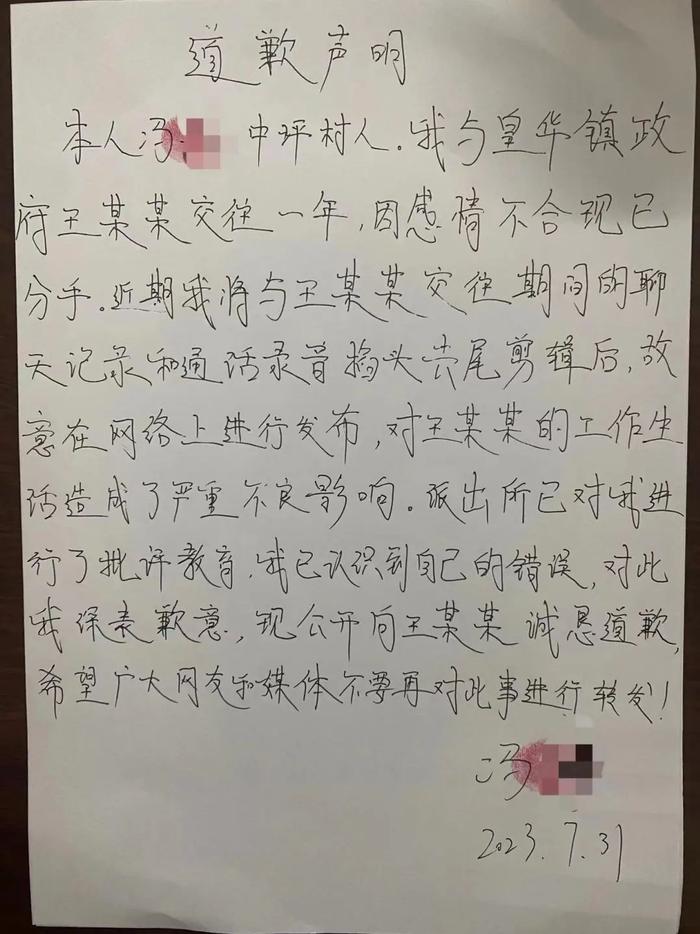 道歉声明
本人冯 中坪村人.我与皇华镇政
府王某某交往一年,因感情不合现已
分手.近期我将与王某某交往期间的聊
天记录和通话录音掐头去尾剪辑后,故
意在网络上进行发布,对王某某的工作生
活造成了严重不良影响。派出所已对我进
行了批评教育.我已认识到自己的错误,对此
我深表歉意,现公开向王某某诚恳道歉,
希望广大网友和媒体不要再对此事进行转发!
冯
2023.7.31